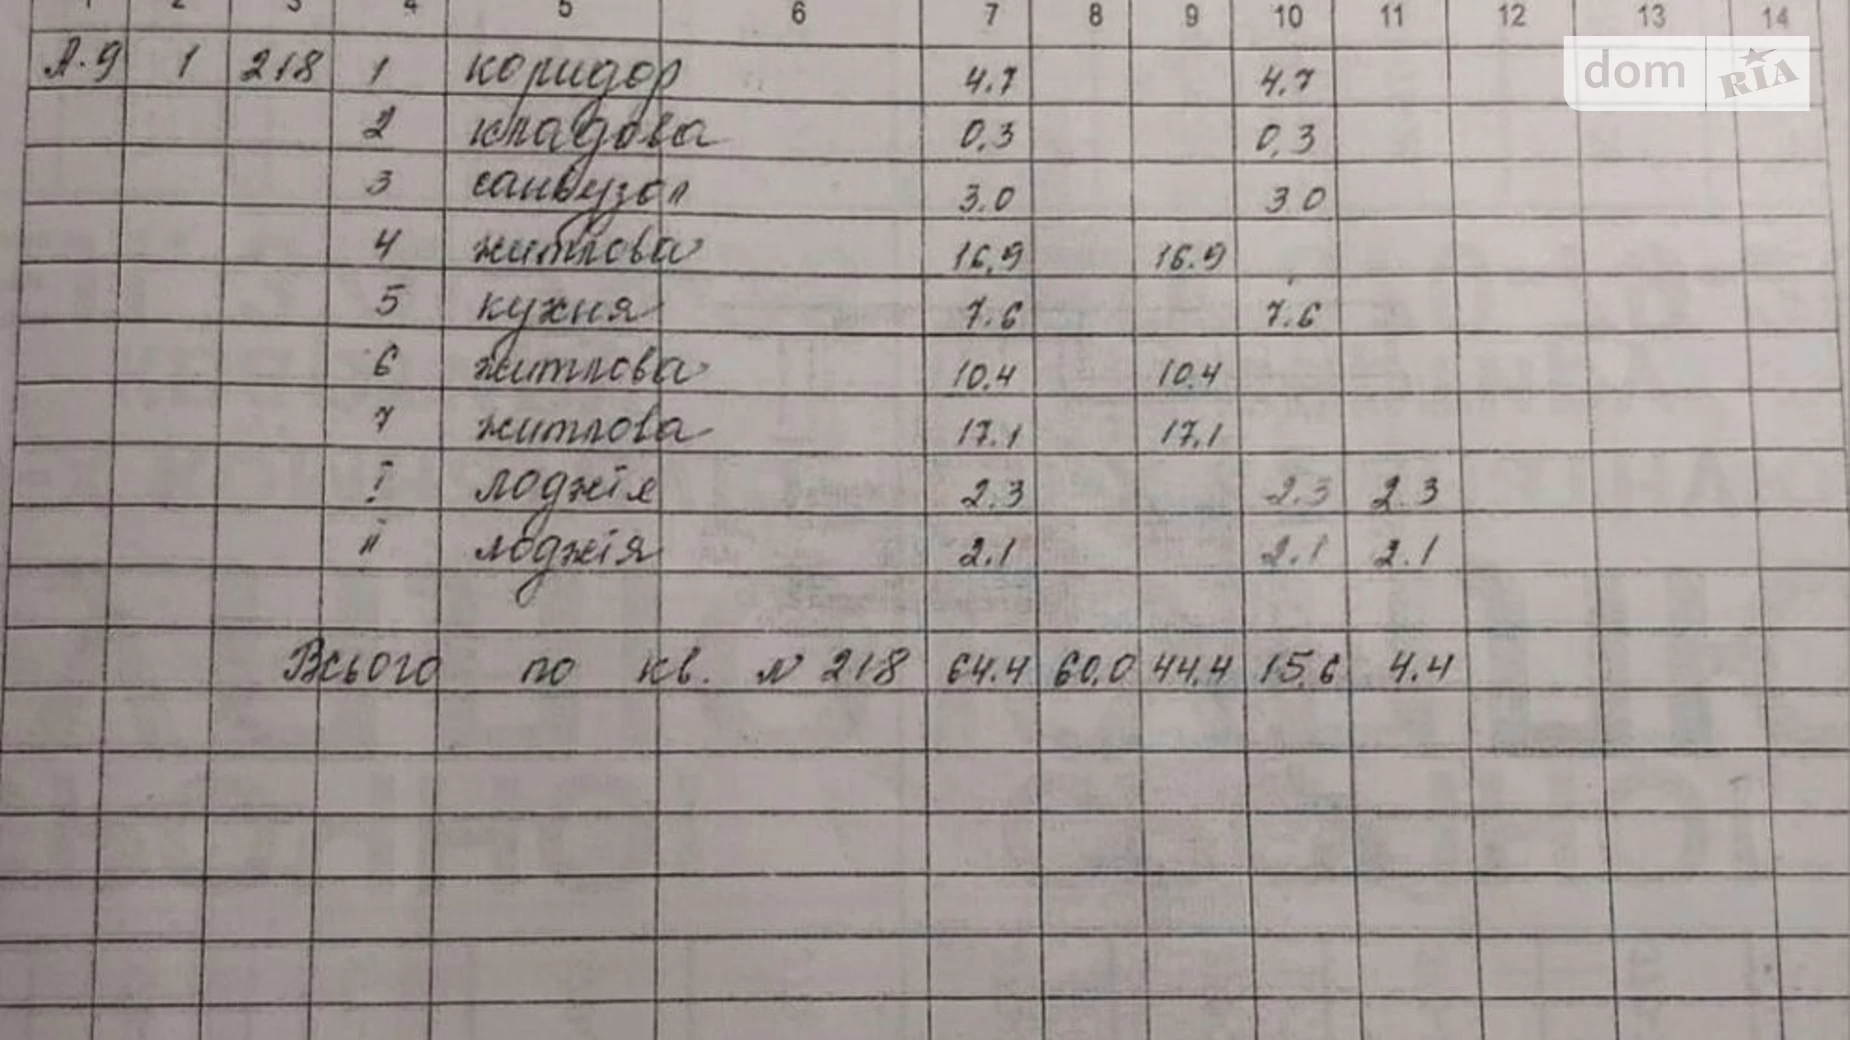 1 2 3 4 5 6 7 8 9 10 11 12 13 14
dom RIA
А-9 1 218 1 коридор 4.7 4.7
2 кладова 0.3 0.3
3 санвузол 3.0 3.0
4 житлова 16.9 16.9
5 кухня 7.6 7.6
6 житлова 10.4 10.4
7 житлова 17.1 17.1
I лоджія 2.3 2.3 2.3
II лоджія 2.1 2.1 2.1
Всього по кв. N 218 64.4 60.0 44.4 15.6 4.4